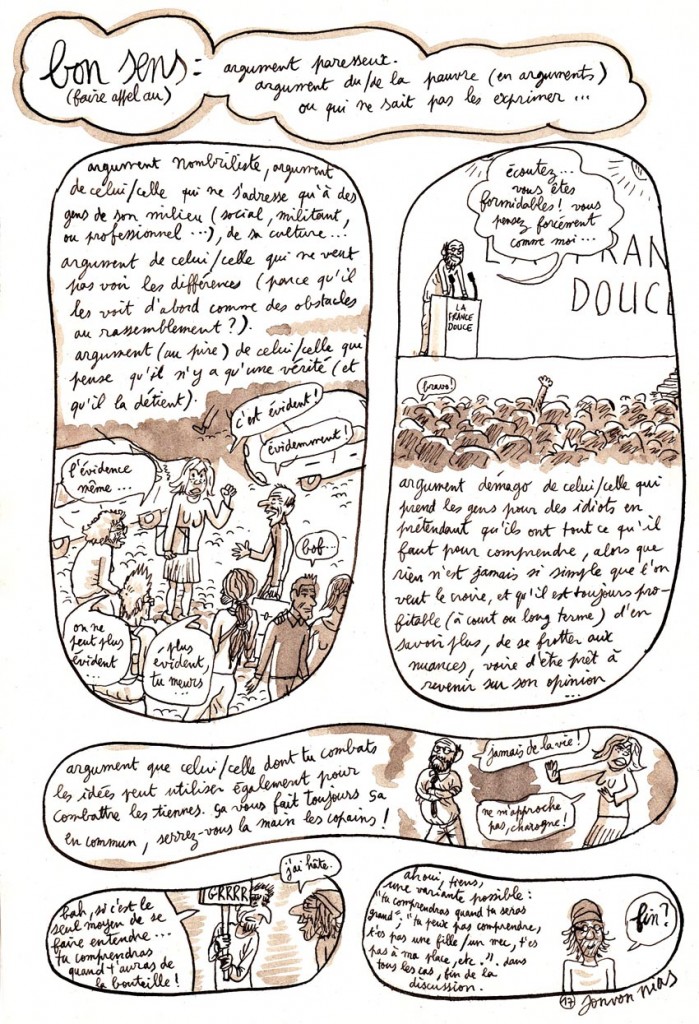 bon sens :
(faire appel au)
argument paresseux.
argument du/de la pauvre (en arguments)
ou qui ne sait pas les exprimer ...
argument nombriliste, argument
de celui/celle qui ne s'adresse qu'à des
gens de son milieu (social, militant,
ou professionnel ...), de sa culture...
argument de celui/celle qui ne veut
pas voir les différences (parce qu'il
les voit d'abord comme des obstacles
au rassemblement ?).
argument (au pire) de celui/celle qui
pense qu'il n'y a qu'une vérité (et
qu'il la détient).
c'est évident !
évidemment !
l'évidence
même ...
bof...
on ne
peut plus
évident ...
plus
évident,
tu meurs...
écoutez...
vous êtes
formidables ! vous
pensez forcément
comme moi ...
LA FRAN
DOUCE
LA
FRANCE
DOUCE
bravo !
argument démago de celui/celle qui
prend les gens pour des idiots en
prétendant qu'ils ont tout ce qu'il
faut pour comprendre, alors que
rien n'est jamais si simple que l'on
veut le croire, et qu'il est toujours pro-
fitable (à court ou long terme) d'en
savoir plus, de se frotter aux
nuances, voire d'être prêt à
revenir sur son opinion
...
argument que celui/celle dont tu combats
les idées peut utiliser également pour
combattre les tiennes. ça vous fait toujours ça
en commun, serrez-vous la main les copains !
jamais de la vie !
ne m'approche
pas, charogne !
bah, si c'est le
seul moyen de se
faire entendre ...
tu comprendras
quand t'auras de
la bouteille !
GRRRR
j'ai hâte.
ahoui, tiens,
une variante possible :
"tu comprendras quand tu seras
grand", "tu peux pas comprendre,
t'es pas une fille/un mec, t'es
pas à ma place, etc.". dans
tous les cas, fin de la
discussion.
fin ?
17 jonvon nias